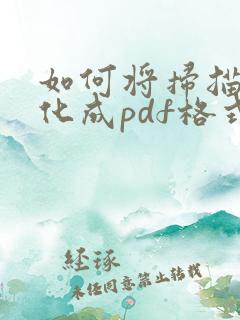 如何将扫描
化成pdf格式
经琢
未经同意禁止转载